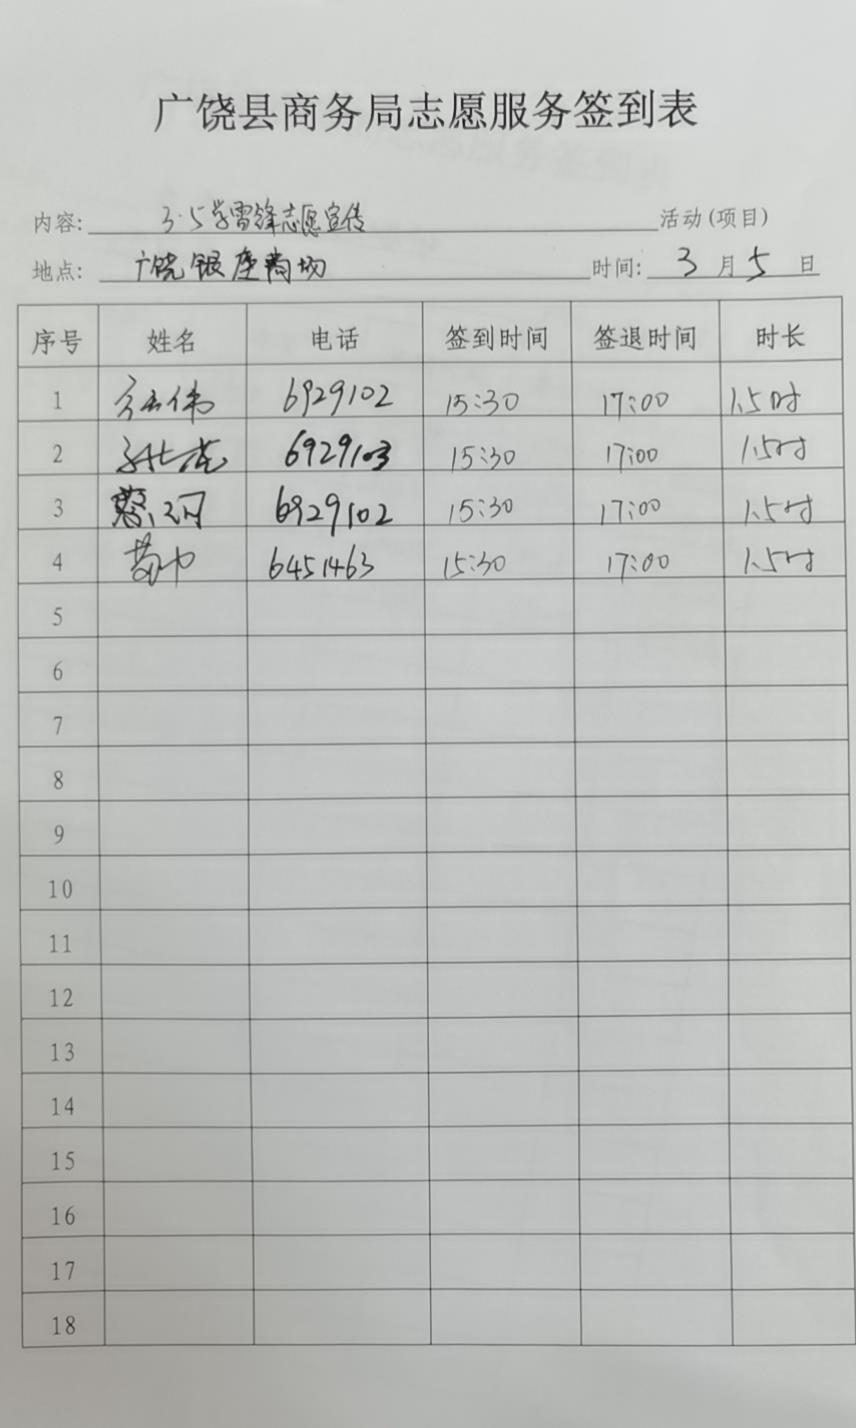 广饶县商务局志愿服务签到表
内容: 3·5学雷锋志愿宣传 活动(项目)
地点: 广饶银座商场 时间: 3 月 5 日
序号 姓名 电话 签到时间 签退时间 时长
1 6929102 15:30 17:00 1.5时
2 6929103 15:30 17:00 1.5时
3 蔡 6929102 15:30 17:00 1.5时
4 6451463 15:30 17:00 1.5时
5
6
7
8
9
10
11
12
13
14
15
16
17
18